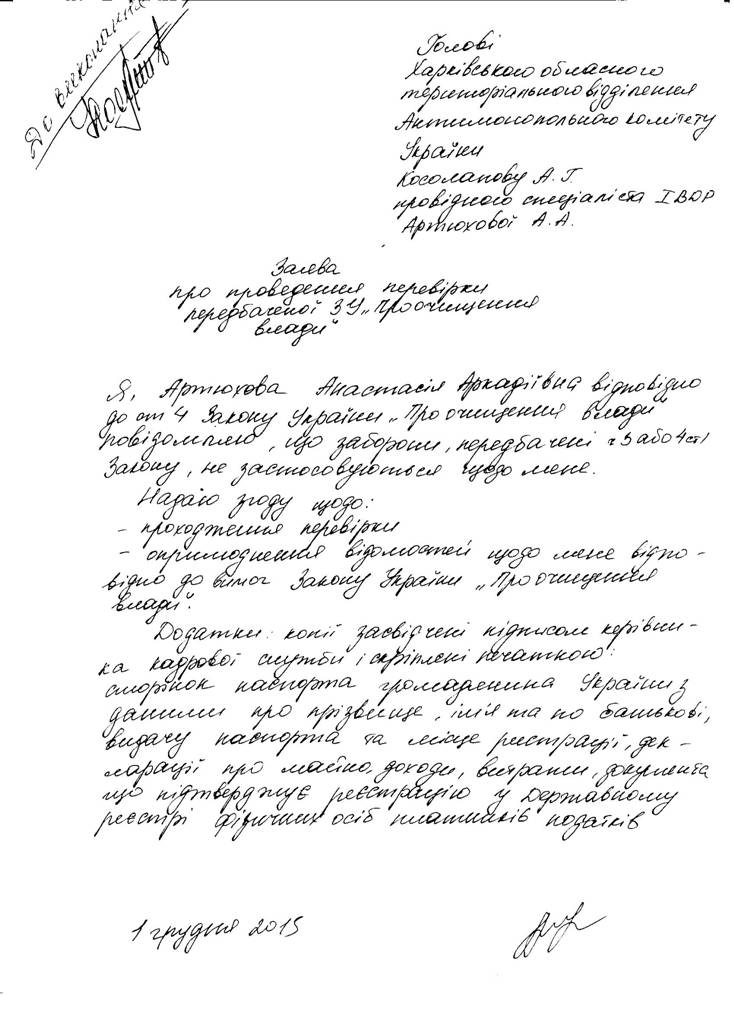 До виконання
Голові
Харківського обласного
територіального відділення
Антимонопольного комітету
України
Косолапову А. Г.
провідного спеціаліста ІВОР
Артюхової А. А.
Заява
про проведення перевірки
передбаченої ЗУ „Про очищення
влади"
Я, Артюхова Анастасія Аркадіївна відповідно
до ст 4 Закону України „Про очищення влади"
повідомляю, що заборони, передбачені ч 3 або 4 ст 1
Закону, не застосовуються щодо мене.
Надаю згоду щодо:
- проходження перевірки
- оприлюднення відомостей щодо мене відпо-
відно до вимог Закону України „Про очищення
влади".
Додатки: копії засвідчені підписом керівни-
ка кадрової служби і скріплені печаткою:
сторінок паспорта громадянина України з
даними про прізвище, ім'я та по батькові,
видачу паспорта та місце реєстрації, дек-
ларації про майно, доходи, витрати, документа
що підтверджує реєстрацію у Державному
реєстрі фізичних осіб платників податків
1 грудня 2015